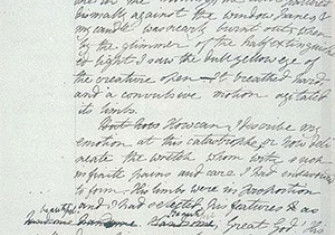 dismally against the window panes &
my candle was nearly burnt out, when
by the glimmer of the half extinguish
ed light I saw the dull yellow eye of
the creature open It breathed hard,
and a convulsive motion agitated
its limbs.
But how How can I describe my
emotion at this catastrophe or how deli
neate the wretch whom with such
infinite pains and care I had endeavoured
to form. His limbs were in proportion
and I had selected his features as
beautiful
handsome handsome Great God! his